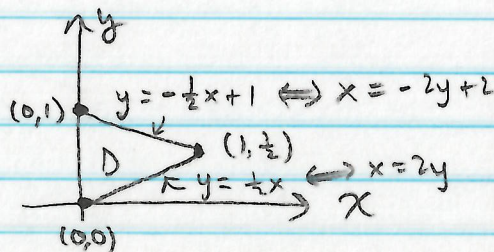 y
(0,1) y = -½x+1 ⟺ x = -2y+2
D (1,½)
y = ½x ⟺ x = 2y
x
(0,0)